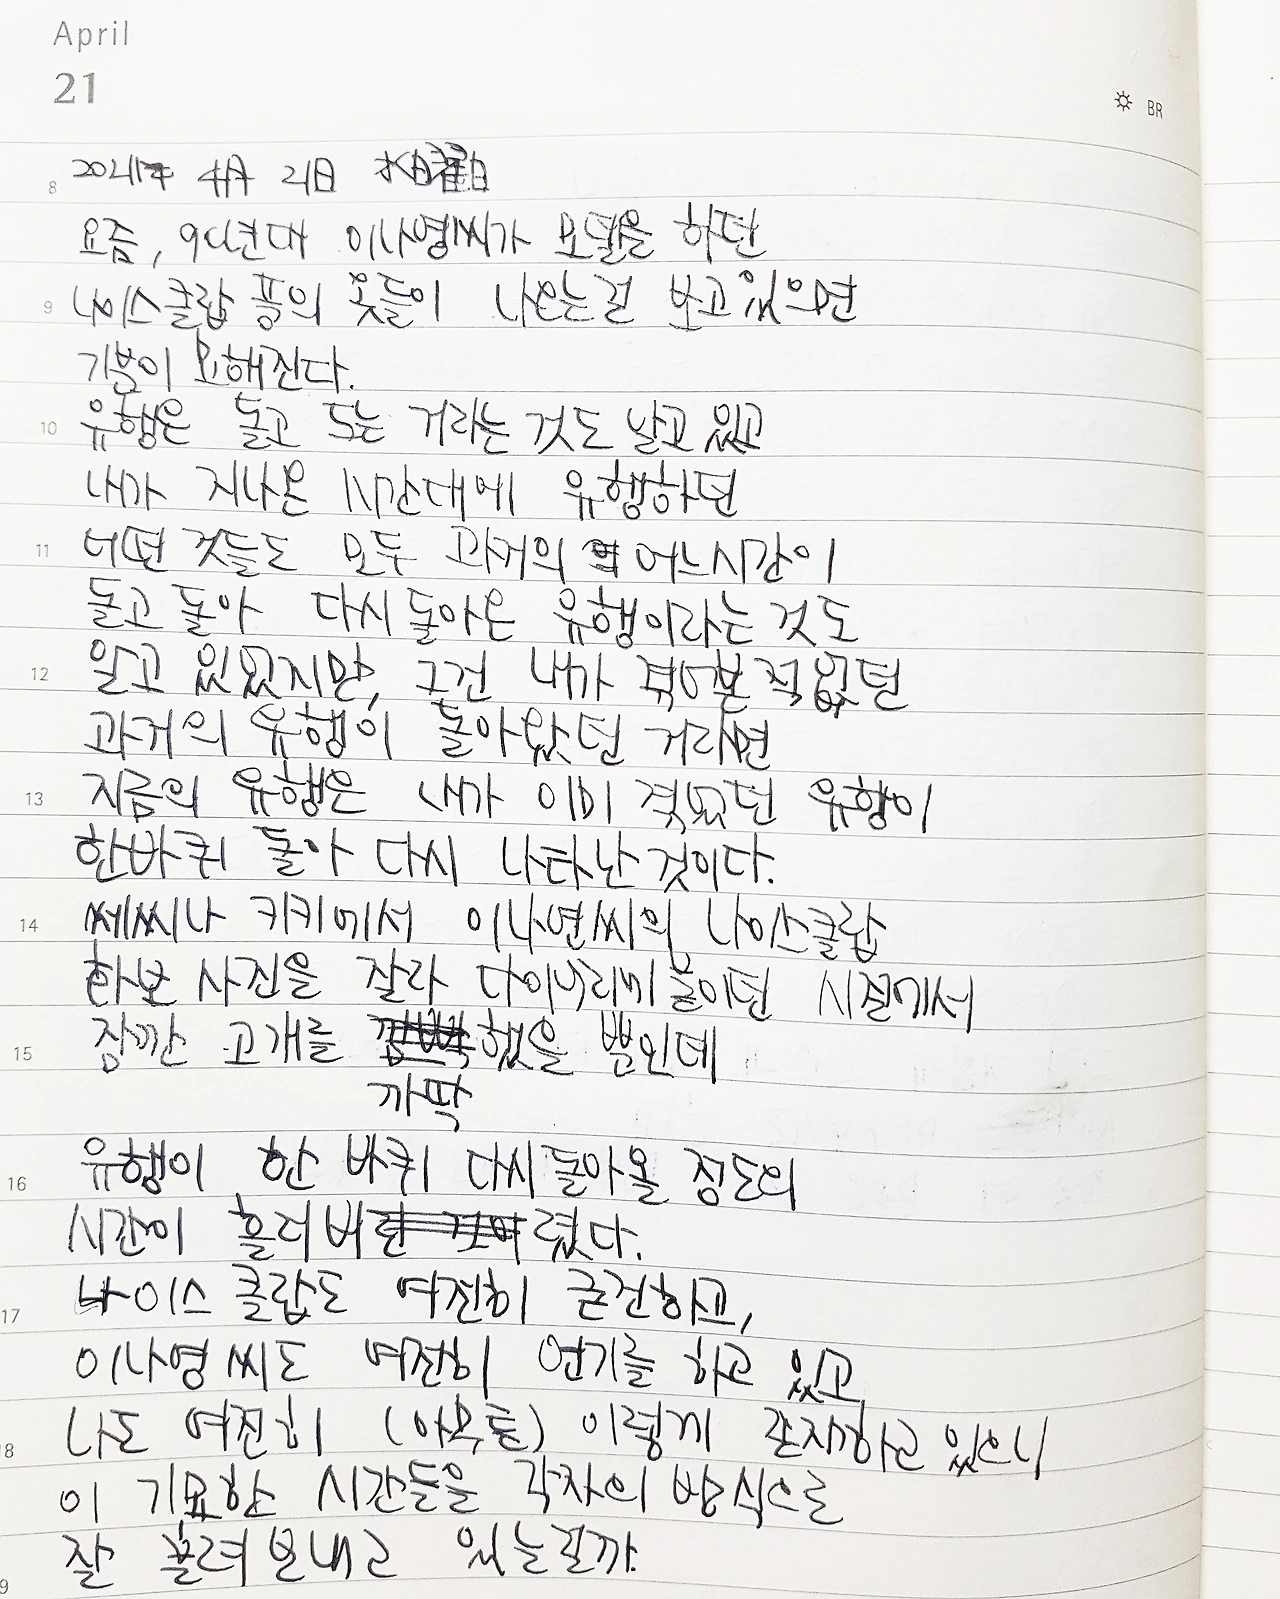 April
21
BR
8 2021年 4月 21日 水曜日
요즘, 90년대 이나영씨가 모델을 하던
9 나이스클랍 풍의 옷들이 나오는걸 보고있으면
기분이 묘해진다.
10 유행은 돌고 도는 거라는 것도 알고 있고
내가 지나온 시간대에 유행하던
11 어떤 것들도 모두 과거의 어느시간이
돌고 돌아 다시 돌아온 유행이라는 것도
12 알고 있었지만, 그건 내가 겪어본 적 없던
과거의 유행이 돌아왔던 거라면
13 지금의 유행은 내가 이미 겪었던 유행이
한바퀴 돌아 다시 나타난 것이다.
14 쎄씨나 키키에서 이나연씨의 나이스클랍
화보 사진을 잘라 다이어리에 붙이던 시절에서
15 잠깐 고개를 했을 뿐인데
까딱
16 유행이 한 바퀴 다시 돌아올 정도의
시간이 흘러버렸다.
17 나이스 클랍도 여전히 굳건하고,
이나영 씨도 여전히 연기를 하고 있고,
18 나도 여전히 (아무튼) 이렇게 존재하고 있으니
이 기묘한 시간들을 각자의 방식으로
19 잘 흘려보내고 있는걸까.